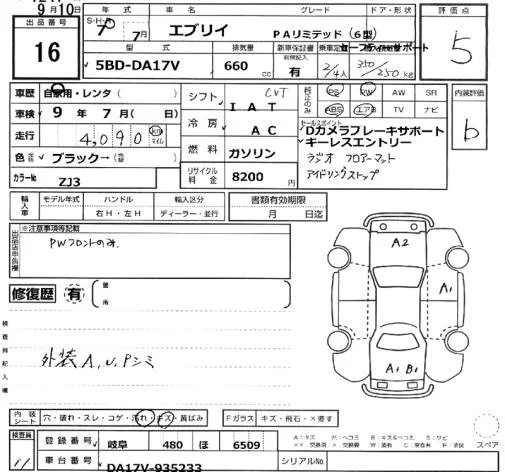 9月10日
出品番号
16
年式
車名
グレード
ドア・形状
S・H・R
7年 7月
エブリイ
PAリミテッド(6型)
評価点
5
型式
排気量
新車保証書
乗車定員
セーフティサポート
5BD-DA17V
660 cc
有
2/4人
350/250 kg
車歴
自家用・レンタ( )
車検
9年 7月( 日)
走行
4,090
km
マイル
色
ブラック→( )
カラーNo
ZJ3
シフト
CVT
I A T
冷房
A C
燃料
ガソリン
リサイクル料金
8200 円
純正のみ
PS PW AW SR
ABS エアB TV ナビ
セールスポイント
Dカメラブレーキサポート
キーレスエントリー
ラジオ フロアーマット
アイドリングストップ
内装評価
b
輸入車
モデル年式
ハンドル
輸入区分
右H・左H
ディーラー・並行
書類有効期限
月 日迄
※注意事項等記載
PWフロントのみ.
修復歴
有
箇所
検査員記入欄
外装A,U,Pシミ
A2
A1
A1 B1
内装シート
穴・破れ・スレ・コゲ・汚れ・キズ・黄ばみ
Fガラス
キズ・飛石・×要す
検査員
登録番号
岐阜 480 ほ 6509
車台番号
DA17V-935233
シリアルNo.
スペア